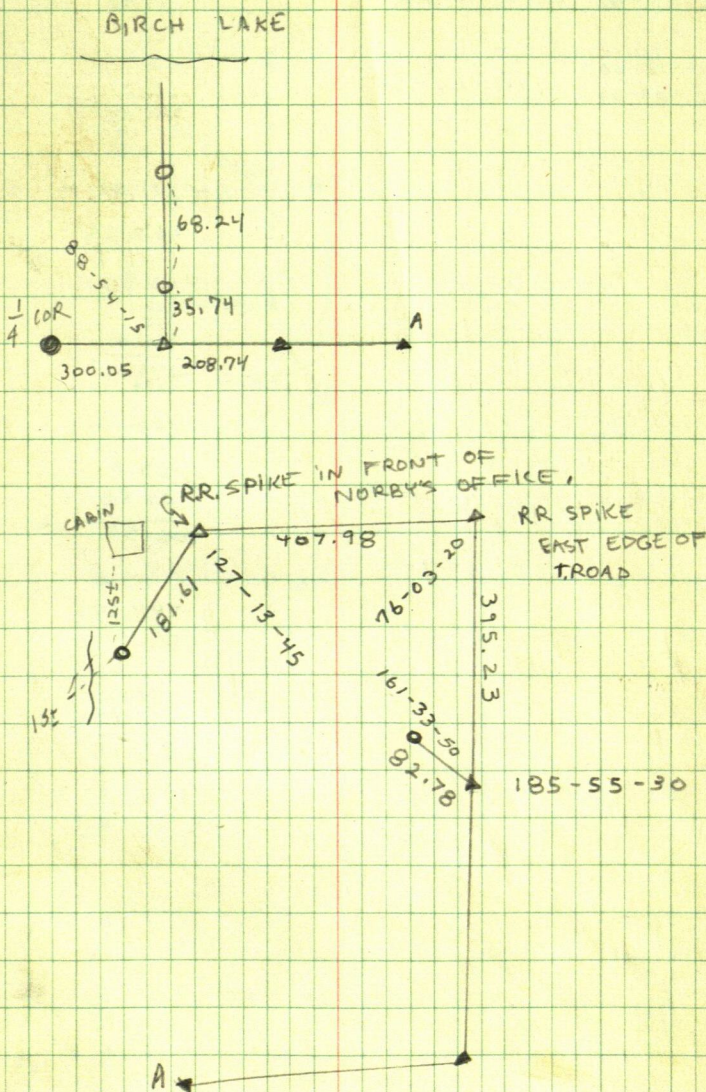 BIRCH LAKE
68.24
88-54-15
35.74
1/4 COR
A
300.05
208.74
R.R. SPIKE IN FRONT OF
NORBY'S OFFICE.
CABIN
407.98
RR SPIKE
EAST EDGE OF
T.ROAD
76-03-20
127-13-45
125±
181.61
395.23
15±
161-33-50
82.78
185-55-30
A